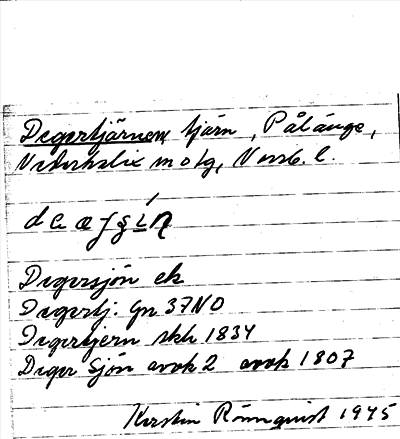 Degertjärnen, tjärn, Pålänge,
Nederkalix m o tg, Norrb. l.
Degersjön ek
Degertj. Gn 37NO
Degertjern skh 1834
Deger Sjön avok 2 avok 1807
Kerstin Rönnquist 1945